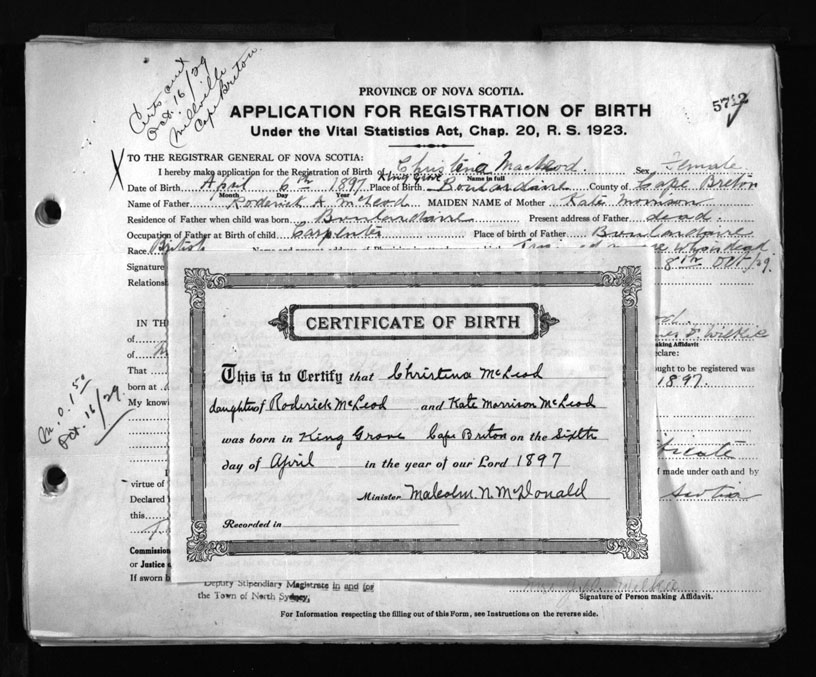 Certs sent
Oct. 16/29
Millville
Cape Breton
PROVINCE OF NOVA SCOTIA.
5712
APPLICATION FOR REGISTRATION OF BIRTH
Under the Vital Statistics Act, Chap. 20, R. S. 1923.
X TO THE REGISTRAR GENERAL OF NOVA SCOTIA:
I hereby make application for the Registration of Birth of Christena MacLeod. Sex Female
Name in full
Date of Birth April 6th 1897 Place of Birth King Grove Boulardarie County of Cape Breton
Month Day Year
Name of Father Roderick A. McLeod MAIDEN NAME of Mother Kate Morrison
Residence of Father when child was born Boulardarie Present address of Father dead.
Occupation of Father at Birth of child Carpenter Place of birth of Father Boulardarie
Race British
Signature 8th Oct/29.
Relations
IN TH
of
of making Affidavit
That eclare:
born at ought to be registered was
My know 1897.
M.O. 1.50
Oct. 16/29.
CERTIFICATE OF BIRTH
This is to Certify that Christena McLeod
daughter of Roderick McLeod and Kate Morrison McLeod
was born in King Grove Cape Breton on the Sixth
day of April in the year of our Lord 1897
Minister Malcolm N. McDonald
Recorded in
virtue of f made under oath and by
Declared Scotia
this
Commission
or Justice
If sworn b
Deputy Stipendiary Magistrate in and for
the Town of North Sydney,
Signature of Person making Affidavit.
For Information respecting the filling out of this Form, see Instructions on the reverse side.